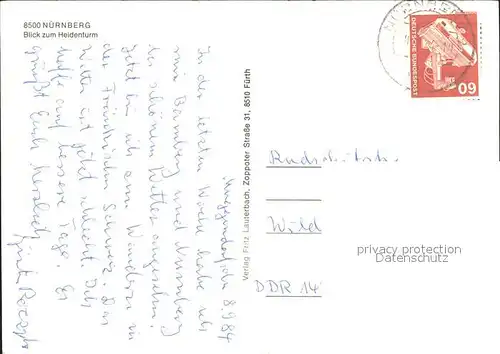 8500 NÜRNBERG
Blick zum Heidenturm
8.9.84
In der letzten Woche habe ich
mir Bamberg und Nürnberg
bei schönem Wetter angesehen.
Jetzt bin ich zum Wandern in
der Fränkischen Schweiz. Das
Wetter ist jetzt schlecht. Ich
hoffe auf bessere Tage. Es
grüßt Euch herzlich
Verlag Fritz Lauterbach, Zoppoter Straße 31, 8510 Fürth
NÜRNBERG
DEUTSCHE BUNDESPOST
60
Wild
DDR 14
privacy protection
Datenschutz